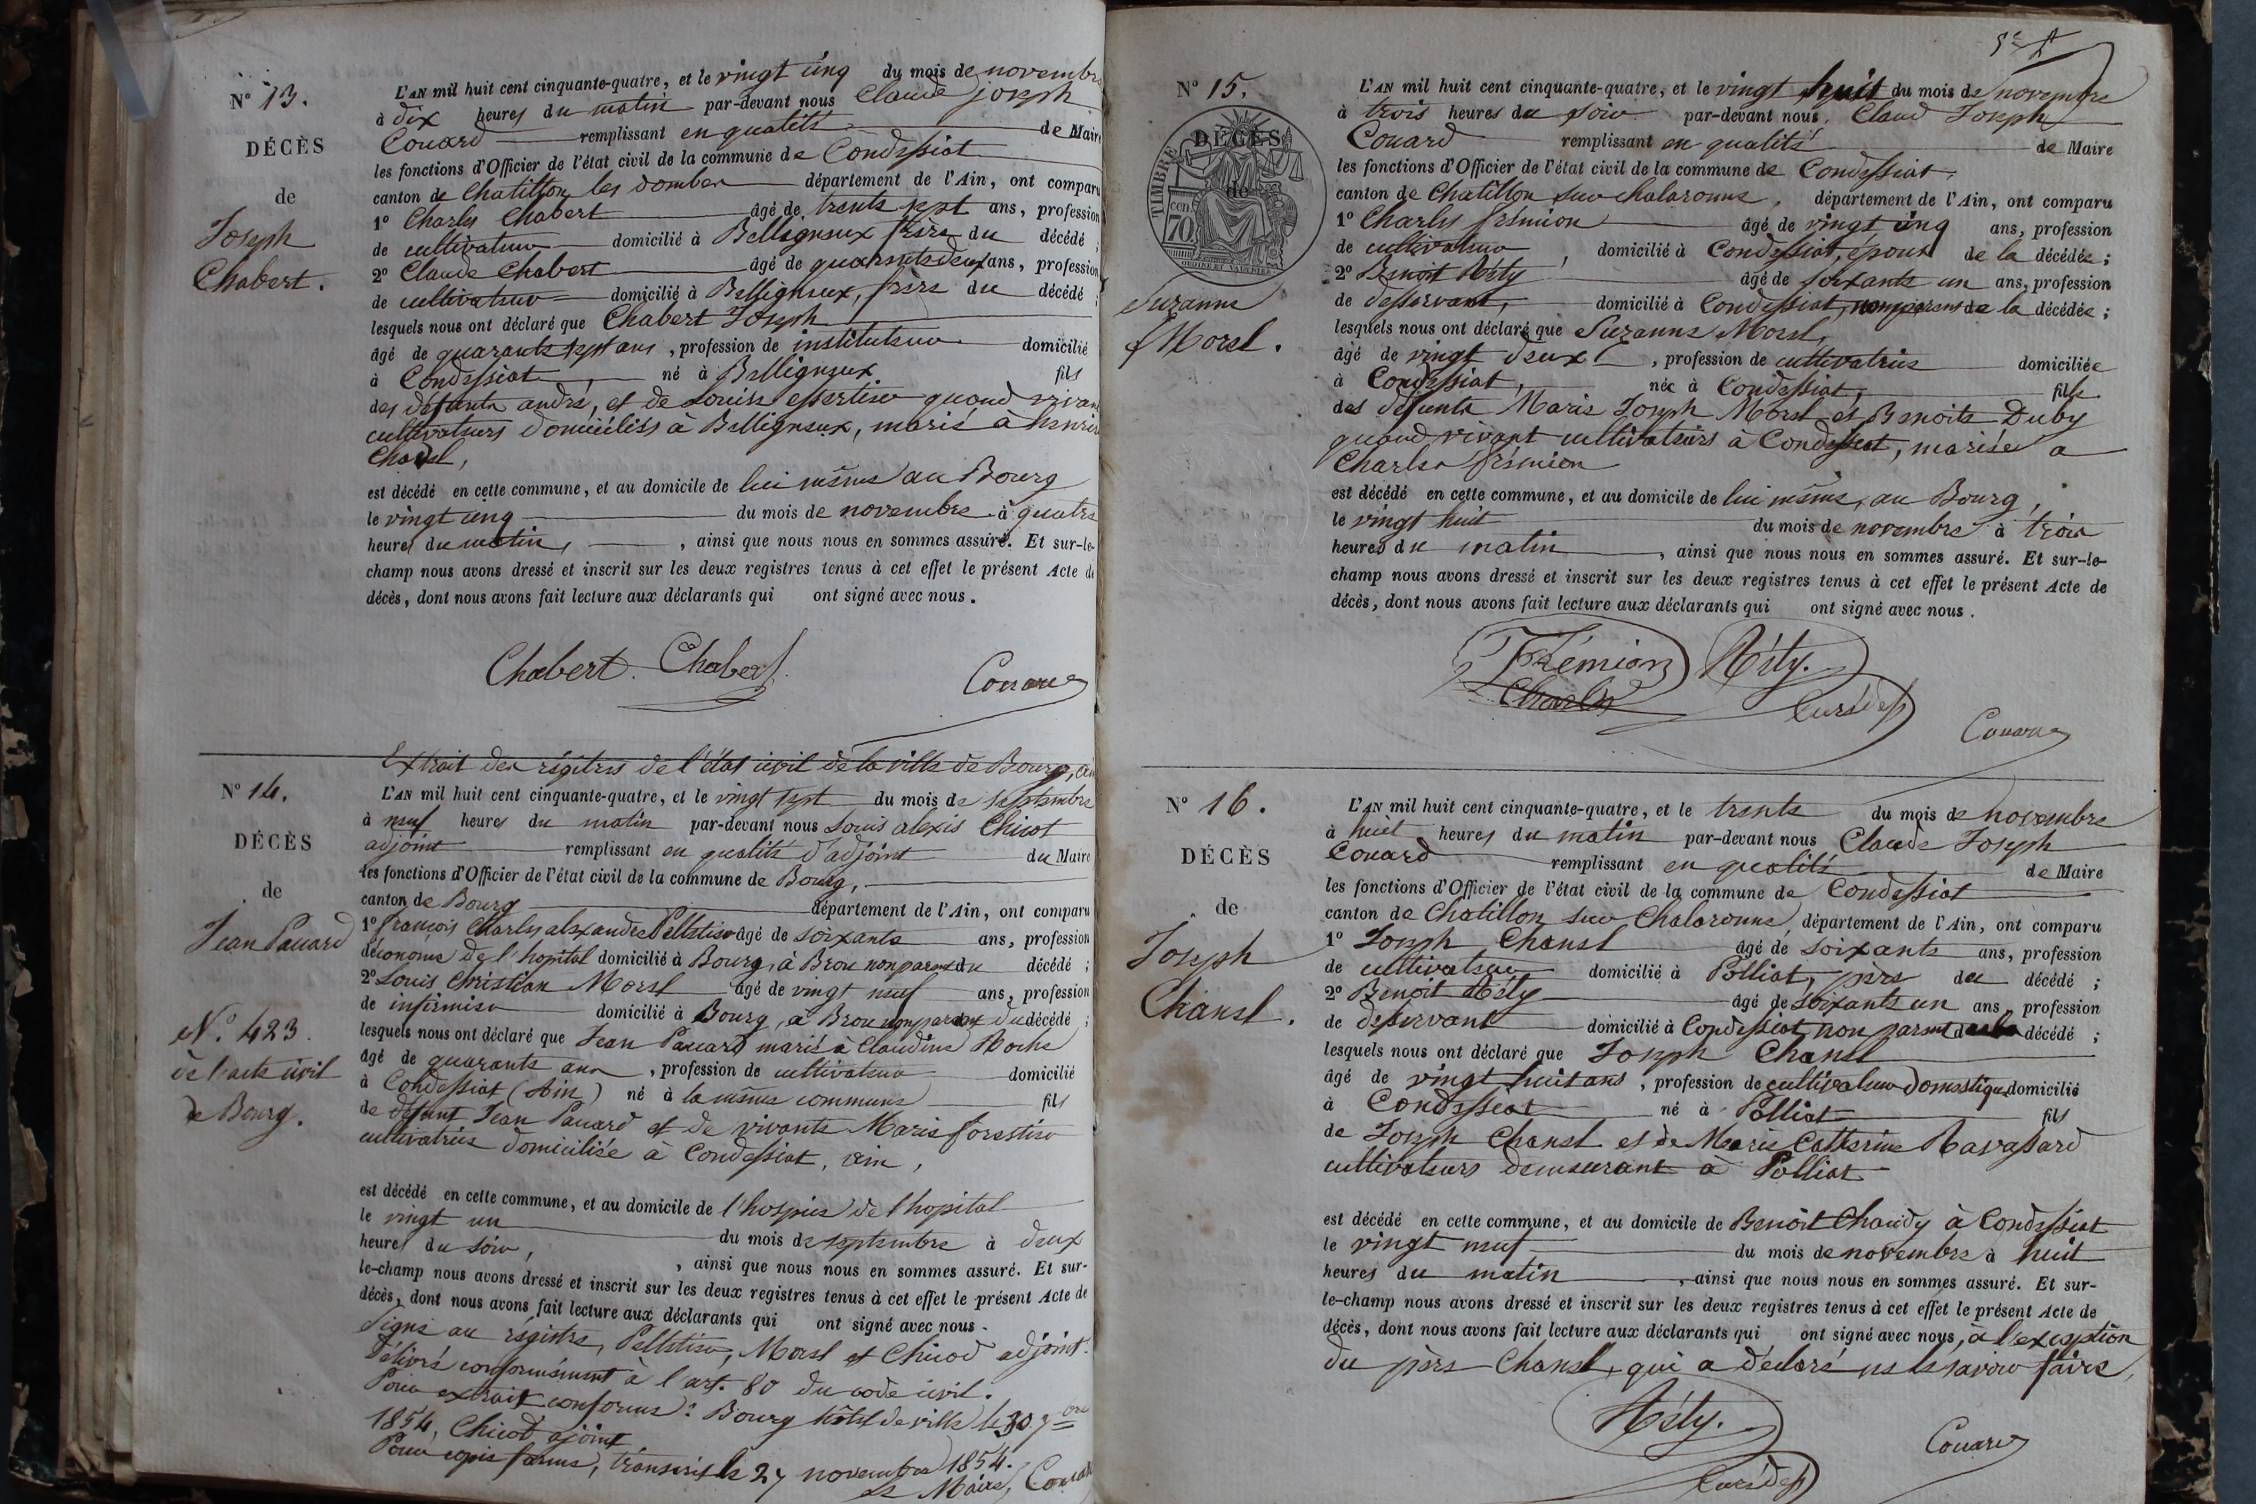 N° 13.
DÉCÈS
de
Joseph
Chabert.
L'AN mil huit cent cinquante-quatre, et le vingt cinq du mois de novembre
à dix heures du matin par-devant nous Claude joseph
Couard remplissant en qualité de Maire
les fonctions d'Officier de l'état civil de la commune de Condessiat
canton de Chatillon les dombes département de l'Ain, ont comparu
1° Charles Chabert âgé de trente sept ans, profession
de cultivateur domicilié à Belligneux frère du décédé ;
2° Claude Chabert âgé de quarante deux ans, profession
de cultivateur domicilié à Belligneux, frère du décédé ;
lesquels nous ont déclaré que Chabert Joseph
âgé de quarante sept ans, profession de instituteur domicilié
à Condessiat né à Belligneux fils
des défunts andré, et de Louise quand vivant
cultivateurs domiciliés à Belligneux, marié à
est décédé en cette commune, et au domicile de lui même au Bourg
le vingt cinq du mois de novembre à quatre
heures du matin, ainsi que nous nous en sommes assuré. Et sur-le-
champ nous avons dressé et inscrit sur les deux registres tenus à cet effet le présent Acte de
décès, dont nous avons fait lecture aux déclarants qui ont signé avec nous.
Chabert. Chabert
Couard
Extrait des régitres de l'état civil de la ville de Bourg, ain
N° 14.
DÉCÈS
de
Jean Pauard
N.° 423
de l'acte civil
de Bourg.
L'AN mil huit cent cinquante-quatre, et le vingt sept du mois de septembre
à neuf heures du matin par-devant nous Louis alexis Chicot
adjoint remplissant en qualité d'adjoint du Maire
les fonctions d'Officier de l'état civil de la commune de Bourg,
canton de Bourg département de l'Ain, ont comparu
1° françois Charles alexandre Pelletier âgé de soixante ans, profession
d'économe de l'hopital domicilié à Bourg, à Brou non parent du décédé ;
2° Louis Christian Morel âgé de vingt neuf ans, profession
de infirmier domicilié à Bourg, à Brou non parent du décédé ;
lesquels nous ont déclaré que Jean Pauard marié à Claudine Roche
âgé de quarante ans, profession de cultivateur domicilié
à Condessiat (Ain) né à la même commune fils
de défunt Jean Pauard et de vivante Marie forestier
cultivatrice domiciliée à Condessiat, ain,
est décédé en cette commune, et au domicile de l'hospice de l'hopital
le vingt un du mois de septembre à deux
heures du soir, ainsi que nous nous en sommes assuré. Et sur-
le-champ nous avons dressé et inscrit sur les deux registres tenus à cet effet le présent Acte de
décès, dont nous avons fait lecture aux déclarants qui ont signé avec nous.
Signé au régistre, Pelletier, Morel et Chicod adjoint.
Délivré conformément à l'art. 80 du code civil.
Pour extrait conforme : Bourg hôtel de ville le 30 7bre
1854, Chicod ajoint
Pour copie forme, transcrit le 27 novembre 1854.
le Maire, Couard
N° 15.
DÉCÈS
de
TIMBRE
70 cen
Suzanne
Morel.
L'AN mil huit cent cinquante-quatre, et le vingt huit du mois de novembre
à trois heures du soir par-devant nous, Claud Joseph
Couard remplissant en qualité de Maire
les fonctions d'Officier de l'état civil de la commune de Condessiat,
canton de Chatillon sur Chalaronne, département de l'Ain, ont comparu
1° Charles frémion âgé de vingt cinq ans, profession
de cultivateur, domicilié à Condessiat, époux de la décédée ;
2° Benoit Réty âgé de soixante un ans, profession
de desservant, domicilié à Condessiat, non parent de la décédée ;
lesquels nous ont déclaré que Suzanne Morel,
âgé de vingt deux, profession de cultivatrice domiciliée
à Condessiat, née à Condessiat, fille
des défunts Marie Joseph Morel et Benoite Duby
quand vivant cultivateurs à Condessiat, mariée à
Charles frémion
est décédé en cette commune, et au domicile de lui même, au Bourg,
le vingt huit du mois de novembre à trois
heures du matin, ainsi que nous nous en sommes assuré. Et sur-le-
champ nous avons dressé et inscrit sur les deux registres tenus à cet effet le présent Acte de
décès, dont nous avons fait lecture aux déclarants qui ont signé avec nous.
Frémion Réty.
Charles Curé des
Couard
N° 16.
DÉCÈS
de
Joseph
Chanel.
L'AN mil huit cent cinquante-quatre, et le trente du mois de novembre
à huit heures du matin par-devant nous Claude Joseph
Couard remplissant en qualité de Maire
les fonctions d'Officier de l'état civil de la commune de Condessiat
canton de Chatillon sur Chalaronne, département de l'Ain, ont comparu
1° Joseph Chanel âgé de soixante ans, profession
de cultivateur domicilié à Polliat, père du décédé ;
2° Benoit Réty âgé de soixante un ans, profession
de desservant domicilié à Condessiat, non parent décédé ;
lesquels nous ont déclaré que Joseph Chanel
âgé de vingt huit ans, profession de cultivateur domestique domicilié
à Condessiat né à Polliat fils
de Joseph Chanel et de Marie Catherine Ravassard
cultivateurs demeurant à Polliat
est décédé en cette commune, et au domicile de Benoit Chaudy à Condessiat
le vingt neuf du mois de novembre à huit
heures du matin, ainsi que nous nous en sommes assuré. Et sur-
le-champ nous avons dressé et inscrit sur les deux registres tenus à cet effet le présent Acte de
décès, dont nous avons fait lecture aux déclarants qui ont signé avec nous, à l'exception
du père Chanel, qui a déclaré ne le savoir faire,
Réty.
Curé des
Couard